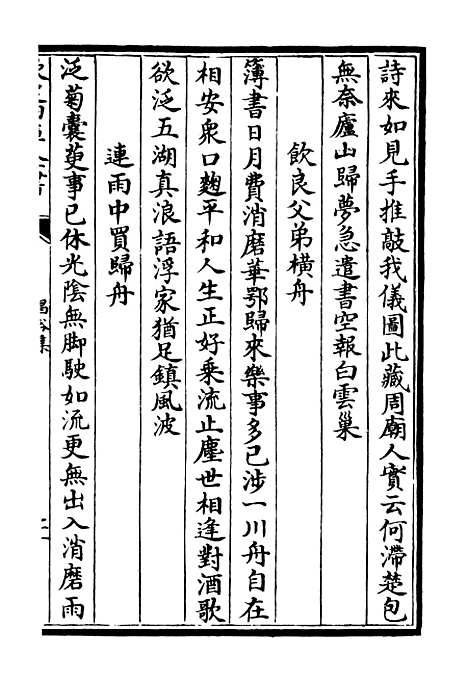 詩來如見手推敲我儀圖此藏周廟人實云何滯楚包
無奈廬山歸夢急遣書空報白雲巢
飲良父弟橫舟
簿書日月費消磨華鄂歸來樂事多已涉一川舟自在
相安衆口麴平和人生正好乘流止塵世相逢對酒歌
欲泛五湖真浪語浮家猶足鎮風波
連雨中買歸舟
泛菊囊萸事已休光陰無脚駛如流更無出入消磨雨